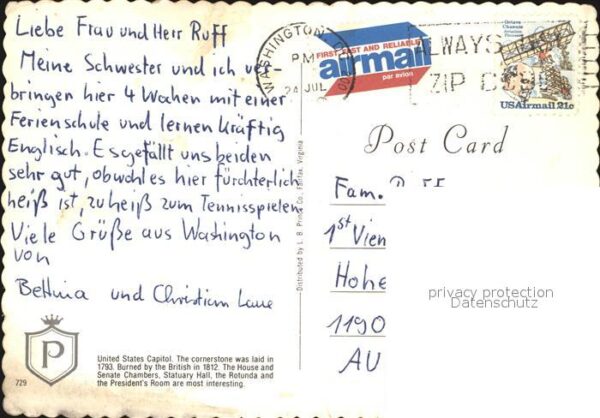 Liebe Frau und Herr Ruff
Meine Schwester und ich ver-
bringen hier 4 Wochen mit einer
Ferienschule und lernen kräftig
Englisch. Es gefällt uns beiden
sehr gut, obwohl es hier fürchterlich
heiß ist, zu heiß zum Tennisspielen
Viele Grüße aus Washington
von
Bettina und Christian
P
729
United States Capitol. The cornerstone was laid in
1793. Burned by the British in 1812. The House and
Senate Chambers, Statuary Hall, the Rotunda and
the President's Room are most interesting.
Distributed by L. B. Prince Co., Fairfax, Virginia
WASHINGTON
PM
24 JUL
FIRST, FAST AND RELIABLE
airmail
par avion
ALWAYS
ZIP CODE
Octave
Chanute
Aviation
Pioneer
USAirmail 21c
Post Card
Fam.
1st Vien
Hohe
1190
AU
privacy protection
Datenschutz